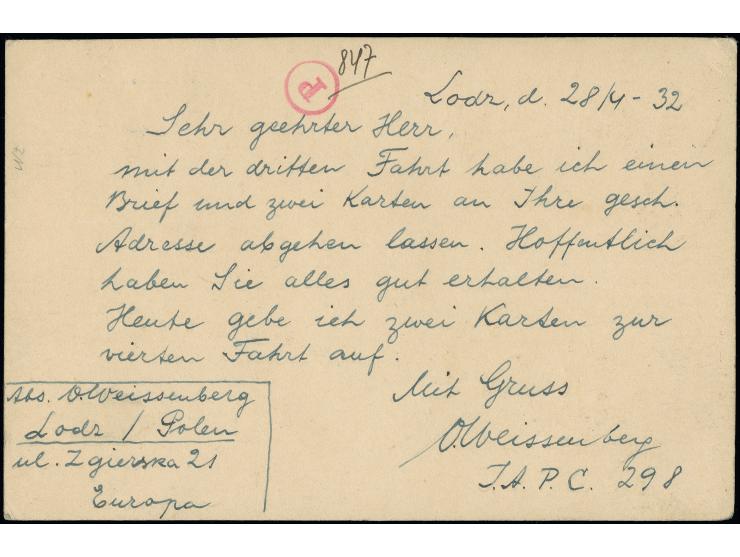 847
P
Lodz, d. 28/4 - 32
Sehr geehrter Herr,
mit der dritten Fahrt habe ich einen
Brief und zwei Karten an Ihre gesch.
Adresse abgehen lassen. Hoffentlich
haben Sie alles gut erhalten.
Heute gebe ich zwei Karten zur
vierten Fahrt auf.
Mit Gruss
O.Weissenberg
I.A.P.C. 298
Abs. O.Weissenberg
Lodz / Polen
ul. Zgierska 21
Europa